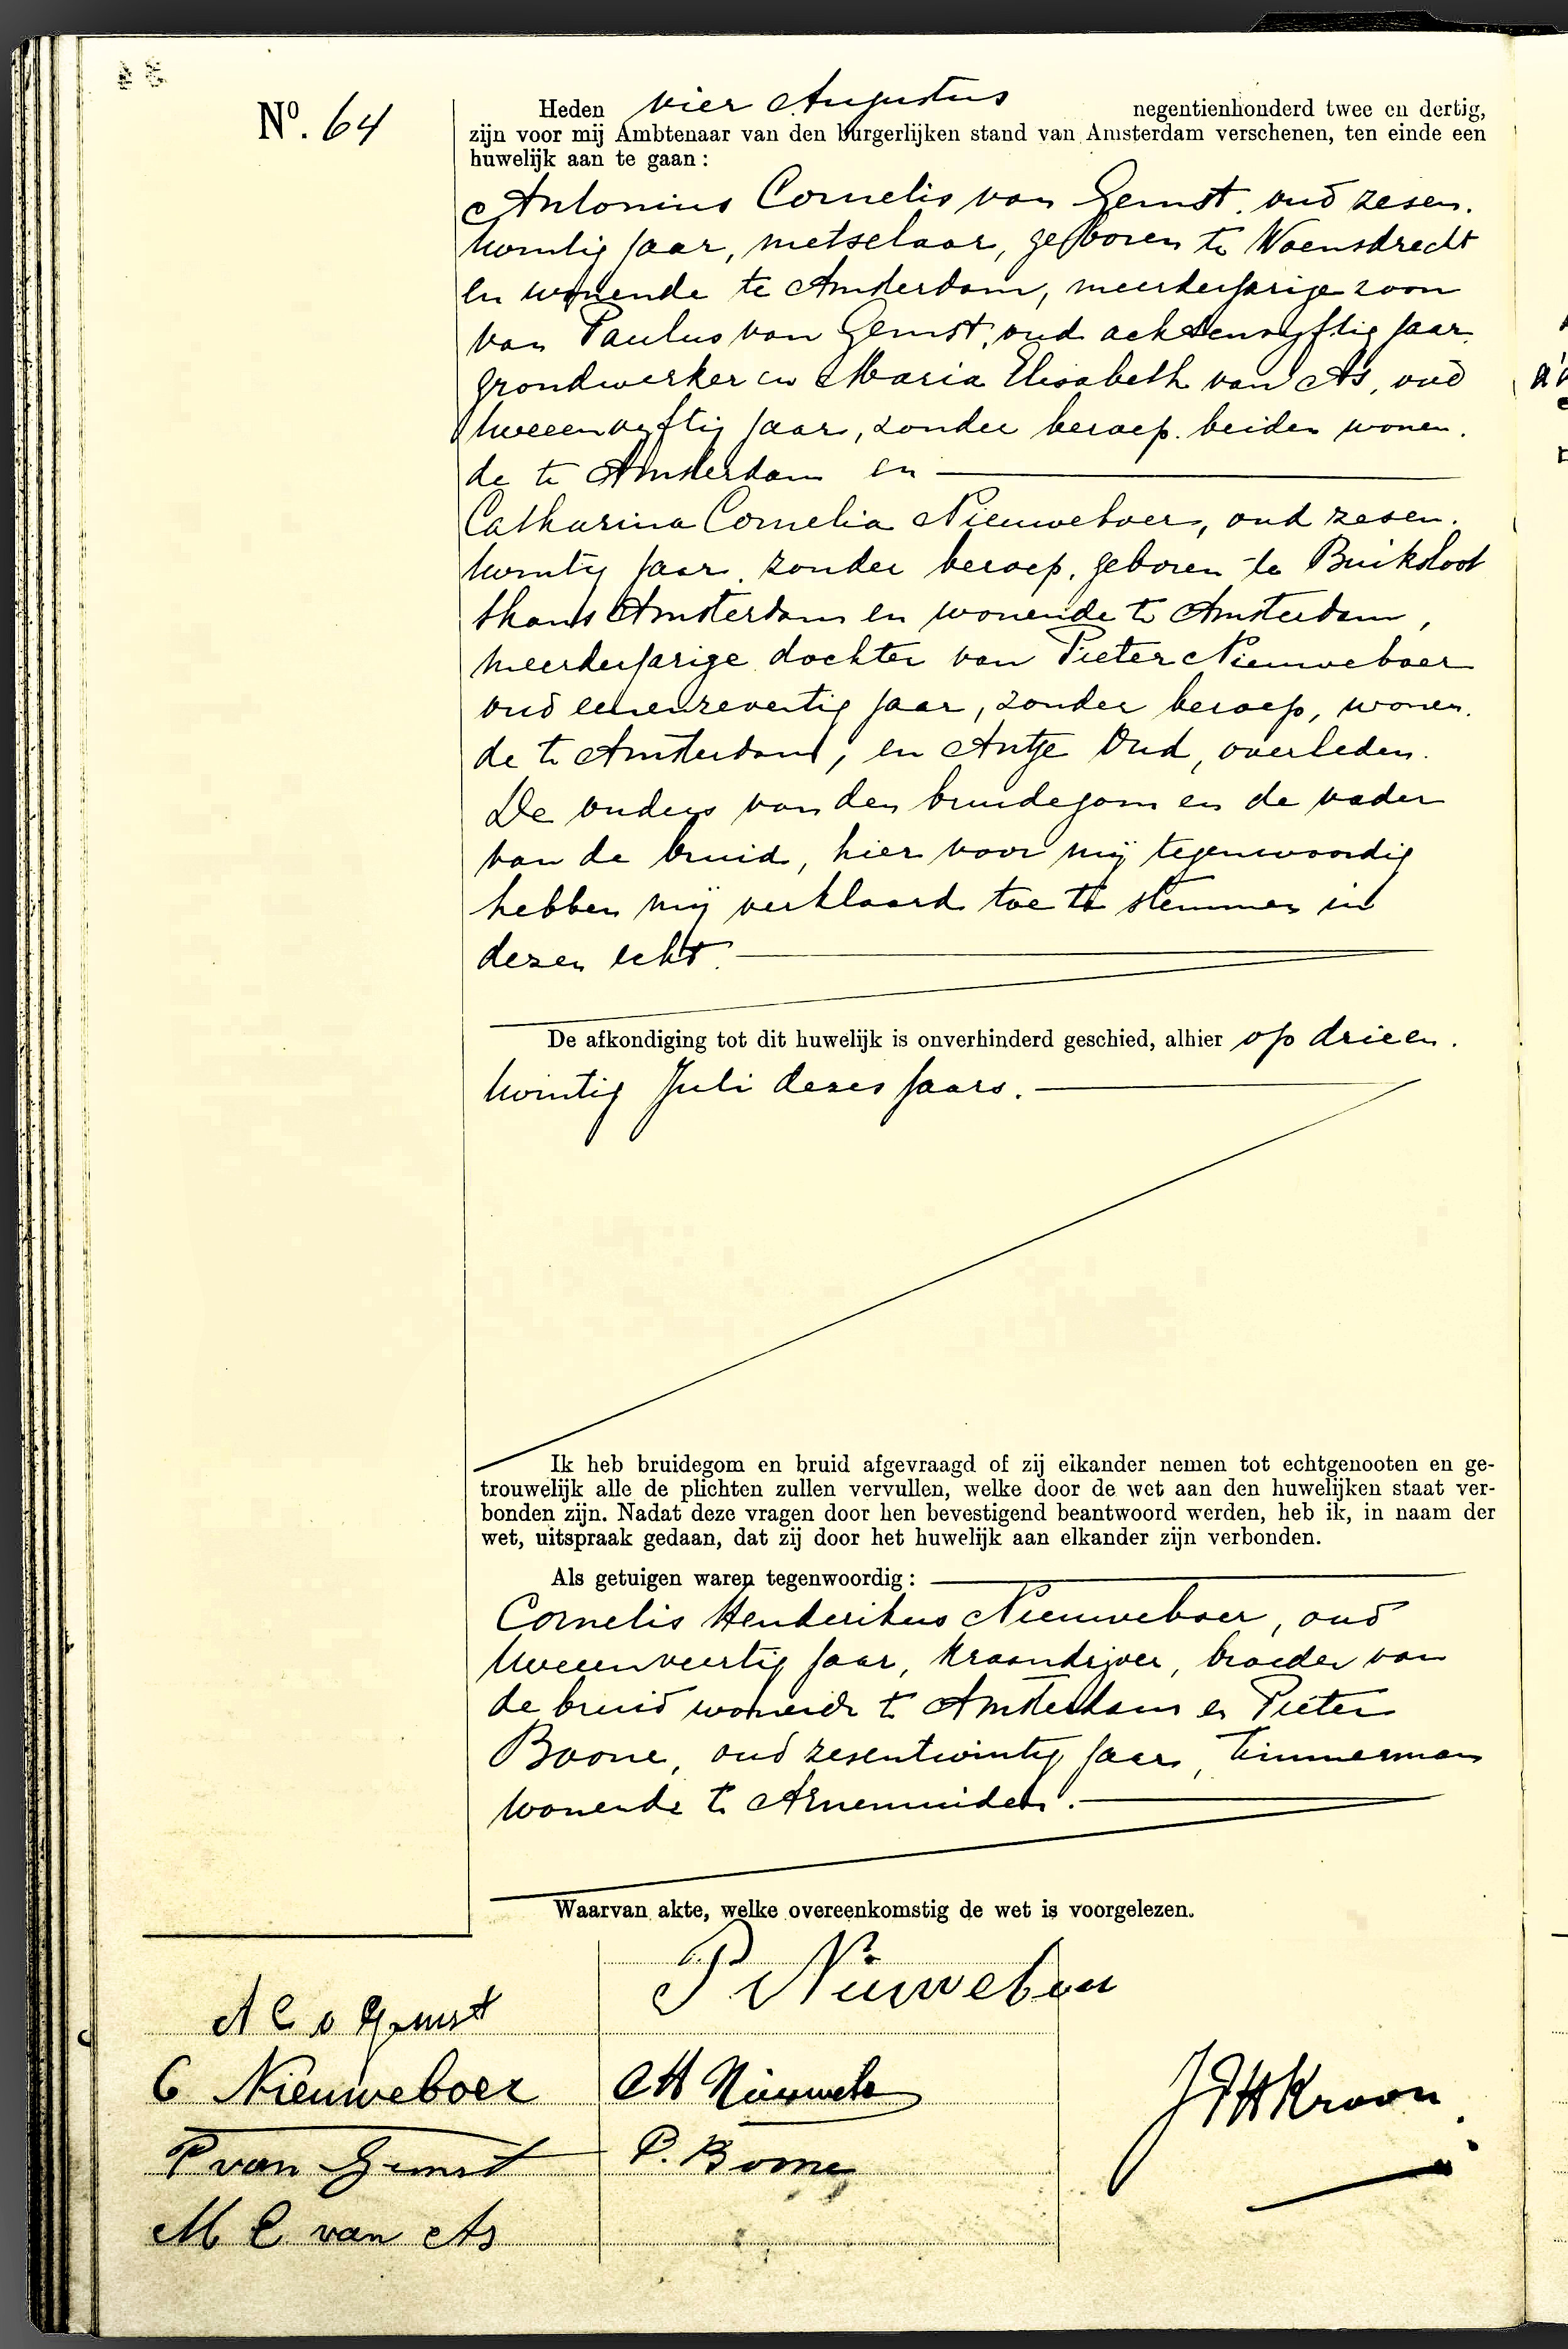 Nº. 64
Heden vier Augustus negentienhonderd twee en dertig,
zijn voor mij Ambtenaar van den burgerlijken stand van Amsterdam verschenen, ten einde een
huwelijk aan te gaan:
Antonius Cornelis van Gemst, oud zesen.
twintig jaar, metselaar, geboren te Woensdrecht
en wonende te Amsterdam, meerderjarige zoon
van Paulus van Gemst, oud achtenvyftig jaar,
grondwerker en Maria Elisabeth van As, oud
tweeenvyftig jaar, zonder beroep. beiden wonen.
de te Amsterdam en
Catharina Cornelia Nieuweboer, oud zesen.
twintig jaar, zonder beroep, geboren te Buiksloot
thans Amsterdam en wonende te Amsterdam,
meerderjarige dochter van Pieter Nieuweboer
oud eenenzeventig jaar, zonder beroep, wonen.
de te Amsterdam, en Antje Oud, overleden.
De ouders van den bruidegom en de vader
van de bruid, hier voor mij tegenwoordig
hebben mij verklaard toe te stemmen in
dezen echt.
De afkondiging tot dit huwelijk is onverhinderd geschied, alhier op drieen.
twintig Juli dezes jaars.
Ik heb bruidegom en bruid afgevraagd of zij elkander nemen tot echtgenooten en ge-
trouwelijk alle de plichten zullen vervullen, welke door de wet aan den huwelijken staat ver-
bonden zijn. Nadat deze vragen door hen bevestigend beantwoord werden, heb ik, in naam der
wet, uitspraak gedaan, dat zij door het huwelijk aan elkander zijn verbonden.
Als getuigen waren tegenwoordig:
Cornelis Henderikus Nieuweboer, oud
tweeenveertig jaar, kraandrijver, broeder van
de bruid wonende te Amsterdam en Pieter
Boone, oud zesentwintig jaar, timmerman
wonende te Arnemuiden.
Waarvan akte, welke overeenkomstig de wet is voorgelezen.
P Nieuweboer
A C v Gemst
C Nieuweboer
CH Nieuwebo
P van Gemst
P. Boone
M E van As
JFH Kroon